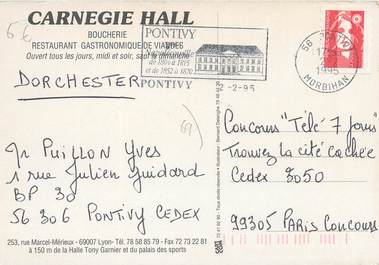 CARNEGIE HALL
BOUCHERIE
RESTAURANT GASTRONOMIQUE DE VIANDES
Ouvert tous les jours, midi et soir, sauf le dimanche
DORCHESTER
PONTIVY
de 1804 à 1815
et de 1852 à 1870
56 PONTIVY
1995
MORBIHAN
-2-95
69
Mr PUILLON Yves
1 rue Julien Guidard
BP 30
56 306 PONTIVY CEDEX
Concours "Télé" 7 jours
Trouvez la cité cachée
Cedex 3050
99305 PARIS Concours
253, rue Marcel-Mérieux - 69007 Lyon - Tél. 78 58 85 79 - Fax 72 73 22 81
à 150 m de la Halle Tony Garnier et du palais des sports